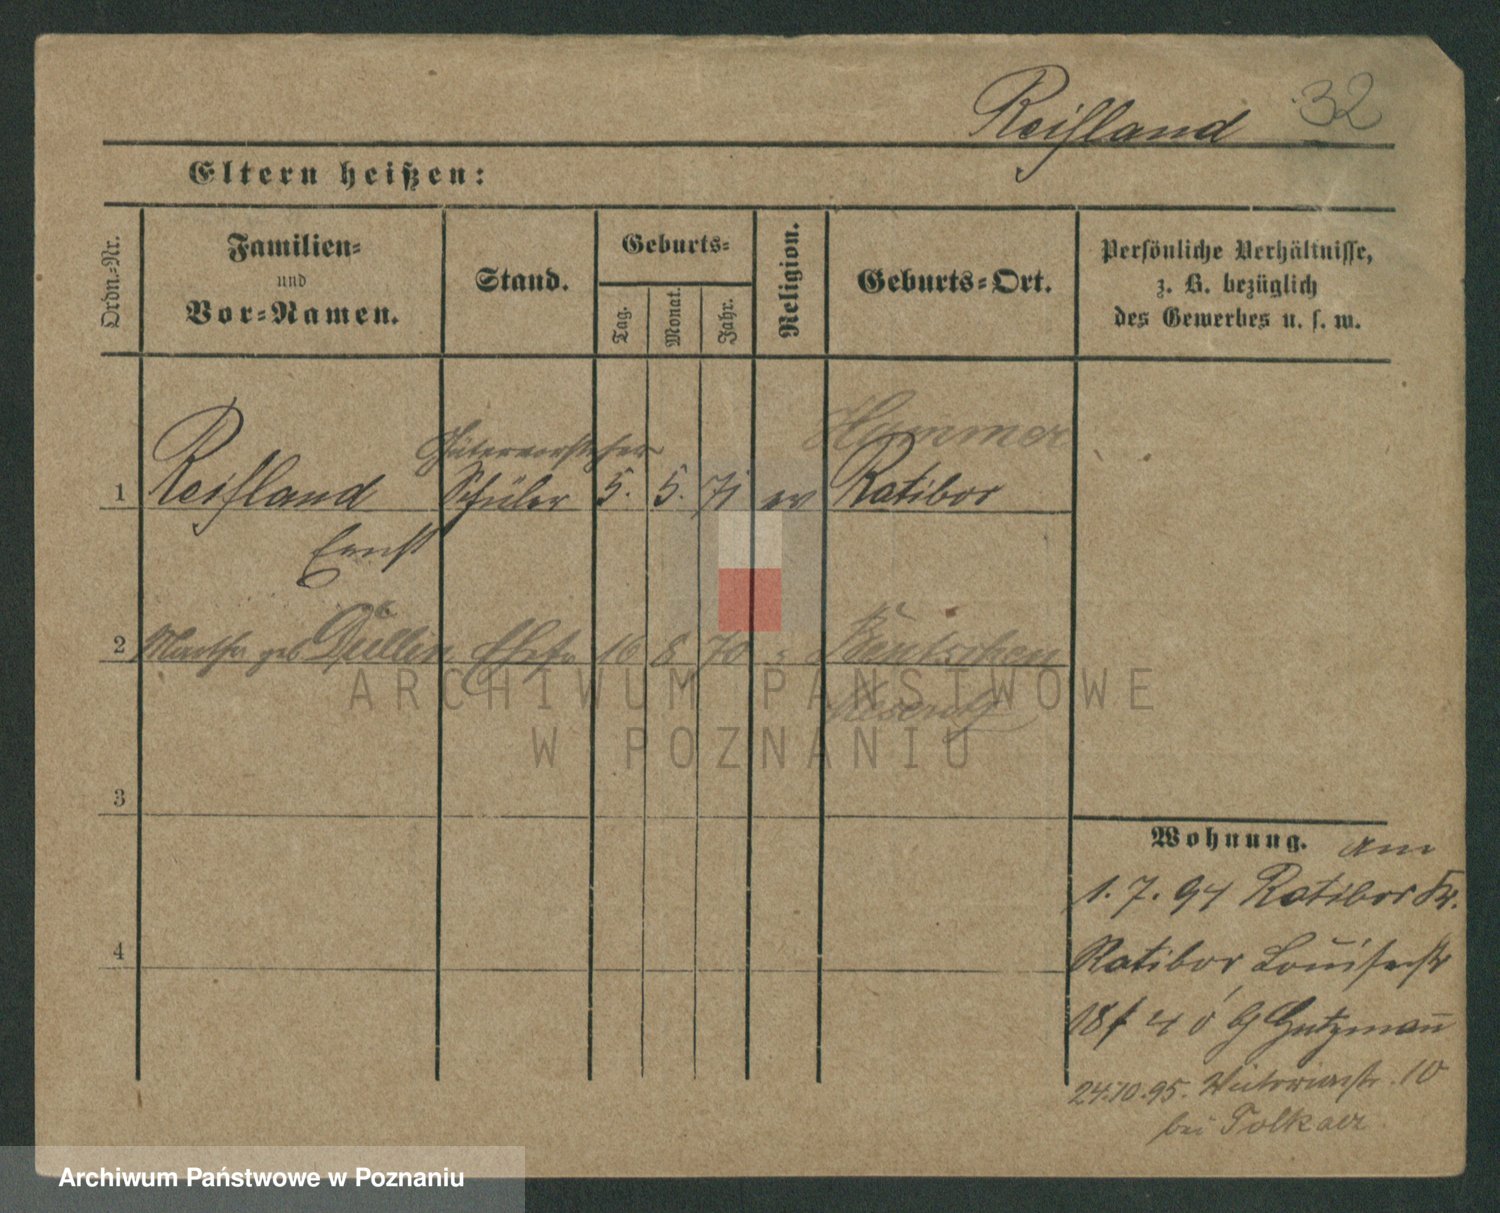 Reißland 32
Eltern heißen:
Ordn.-Nr.
Familien-
und
Vor-Namen.
Stand.
Geburts-
Tag.
Monat.
Jahr.
Religion.
Geburts-Ort.
Persönliche Verhältnisse,
z. B. bezüglich
des Gewerbes u. s. w.
Hammer
Gütervorsteher
1 Reißland Schüler 5. 5. 71 ev Ratibor
Ernst
2 Martha geb Düllin Ehefr 16 8 70 " Bentschen
Meseritz
ARCHIWUM PAŃSTWOWE
W POZNANIU
3
4
Wohnung. am
1. 7. 94 Ratibor Kr.
Ratibor Louisenstr
18 Gutzmann
24.10.95. Victoriastr. 10
bei
Archiwum Państwowe w Poznaniu